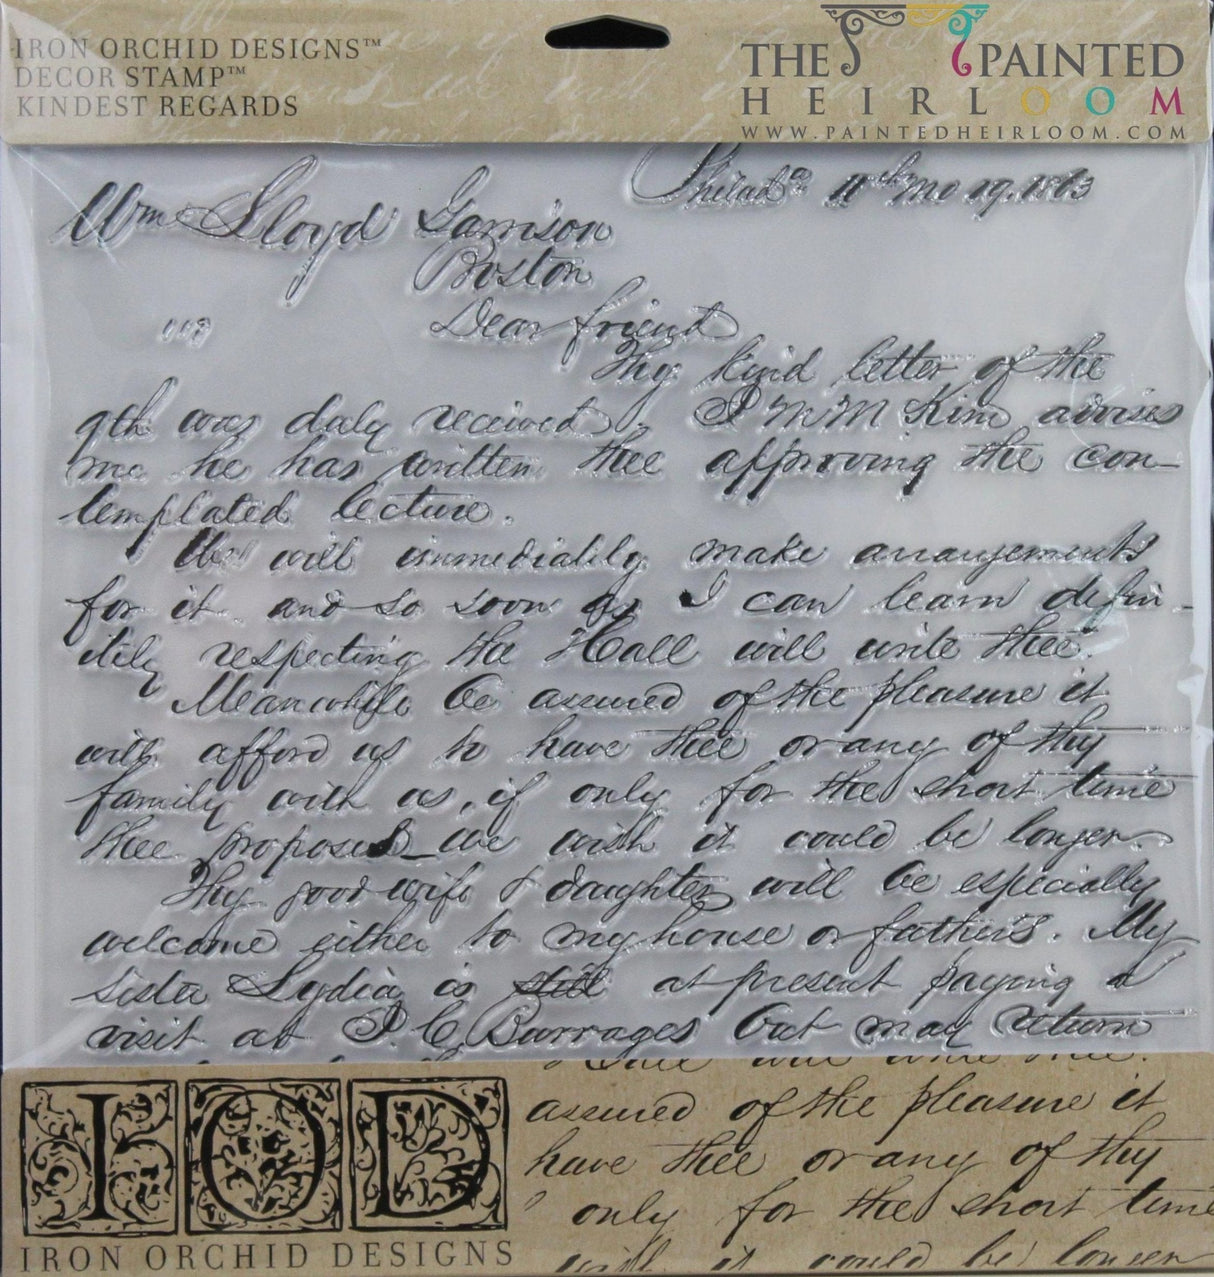 IRON ORCHID DESIGNS™
DECOR STAMP™
KINDEST REGARDS
THE PAINTED
HEIRLOOM
WWW.PAINTEDHEIRLOOM.COM
Philada 11th mo 19. 1863
Wm Lloyd Garrison
Boston
Dear friend
Thy kind letter of the
9th was duly received. I M M Kim advises
me he has written thee approving the con-
templated lecture.
We will immediately make arrangements
for it and so soon as I can learn defin-
itily respecting the Hall will write thee.
Meanwhile be assured of the pleasure it
will afford us to have thee or any of thy
family with us, if only for the short time
thee proposed _ we wish it could be longer.
Thy good wife & daughter will be especially
welcome either to my house or father's. My
sister Lydia is still at present paying a
visit at J. C. Burrages but may return
IOD
IRON ORCHID DESIGNS
Hall will write thee.
assured of the pleasure it
have thee or any of thy
only for the short time
wish it could be longer